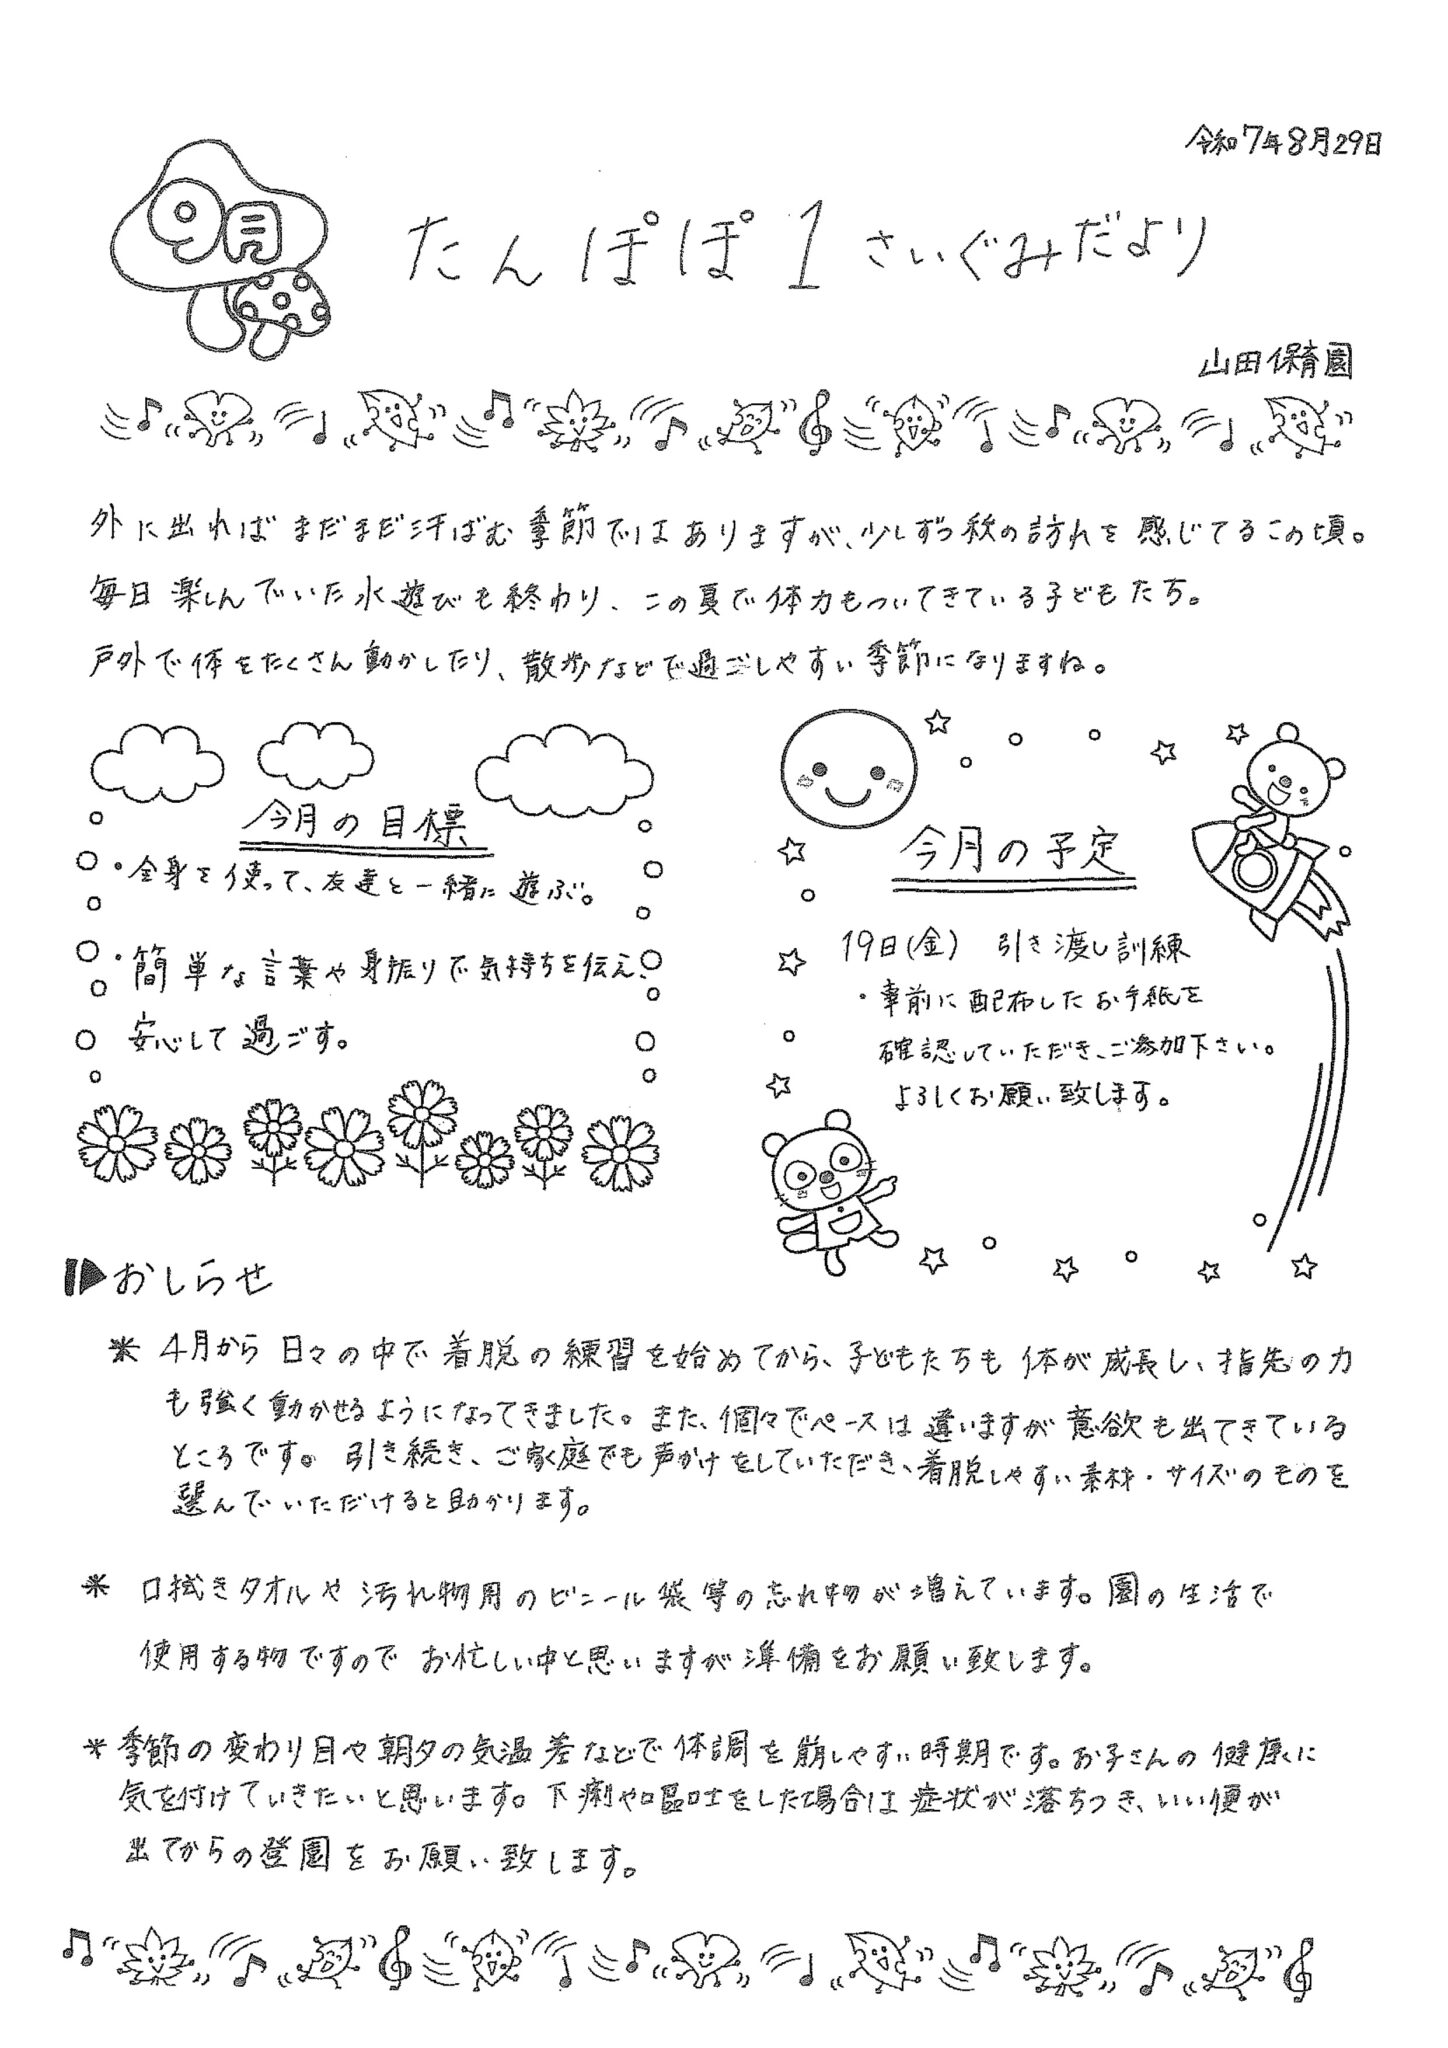 令和7年8月29日
9月
たんぽぽ1さいぐみだより
山田保育園
外に出ればまだまだ汗ばむ季節ではありますが、少しずつ秋の訪れを感じてるこの頃。
毎日楽しんでいた水遊びも終わり、この夏で体力もついてきている子どもたち。
戸外で体をたくさん動かしたり、散歩などで過ごしやすい季節になりますね。
今月の目標
・全身を使って、友達と一緒に遊ぶ。
・簡単な言葉や身振りで気持ちを伝え、
安心して過ごす。
今月の予定
19日(金) 引き渡し訓練
・事前に配布したお手紙を
確認していただき、ご参加下さい。
よろしくお願い致します。
おしらせ
* 4月から日々の中で着脱の練習を始めてから、子どもたちも体が成長し、指先の力
も強く動かせるようになってきました。また、個々でペースは違いますが意欲も出てきている
ところです。引き続き、ご家庭でも声かけをしていただき、着脱しやすい素材・サイズのものを
選んでいただけると助かります。
* 口拭きタオルや汚れ物用のビニール袋等の忘れ物が増えています。園の生活で
使用する物ですのでお忙しい中と思いますが準備をお願い致します。
* 季節の変わり目や朝夕の気温差などで体調を崩しやすい時期です。お子さんの健康に
気を付けていきたいと思います。下痢や嘔吐をした場合は症状が落ちつき、いい便が
出てからの登園をお願い致します。